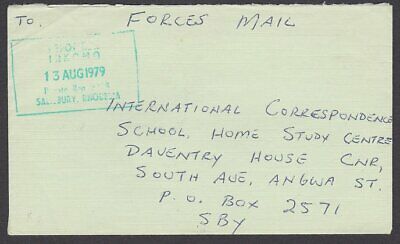 To. FORCES MAIL
13 AUG 1979
SALISBURY, RHODESIA
INTERNATIONAL CORRESPONDENCE
SCHOOL, HOME STUDY CENTRE
DAVENTRY HOUSE CNR,
SOUTH AVE, ANGWA ST.
P.O. BOX 2571
SBY